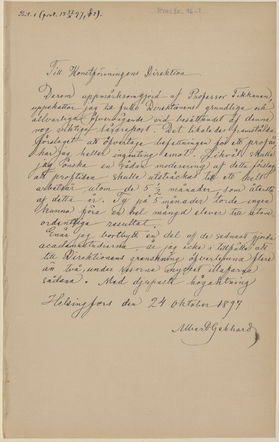 Till Konstföreningens Direktion
Derom uppmärksamgjord af Professor Tikkanen,
uppskattar jag till fullo Direktionens grundliga och
allvarliga öfvervägande vid besättandet af denna
nog viktiga lärarepost. Det likaledes framstälda
förslaget att öfvertaga befattningen för ett profår
har jag heller ingenting emot. Likväl skulle
jag önska en sådan moderering af detta förslag
att proftiden skulle utsträckas till ett helt
arbetsår utom de 5 ½ månader som återstå
af detta år. Ty på 5 månader torde ingen
kunna föra en hel mängd elever till utom
ordentliga resultat.
Enär jag bortbytt en del af de
academistudierna, är jag icke i tillfälle att
till Direktionens granskning öfverlemna flere
än två, under resorna mycket illa
sådana. Med djupaste högaktning
Helsingfors den 24 Oktober 1897
Albert Gebhard